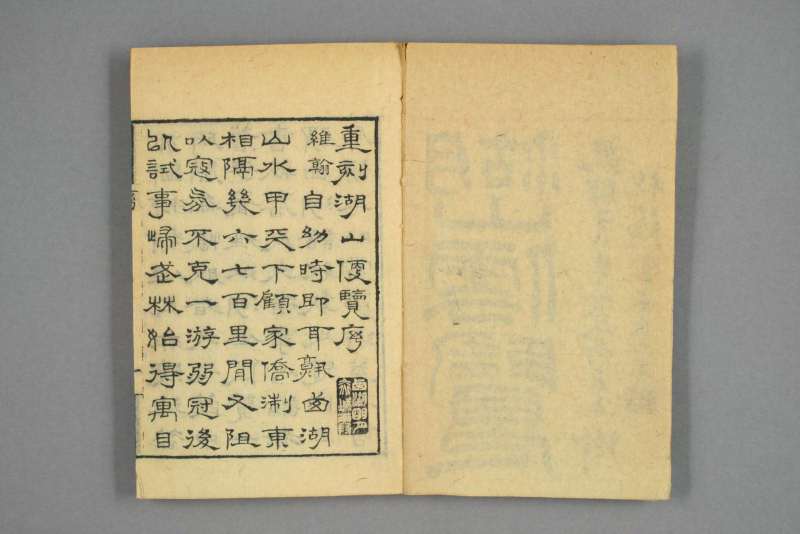 重刻湖山便覽序
維翰自幼時即耳熟西湖
山水甲天下顧家僑淛東
相隔幾六七百里間又阻
以寇氛不克一游弱冠後
以試事歸武林始得寓目